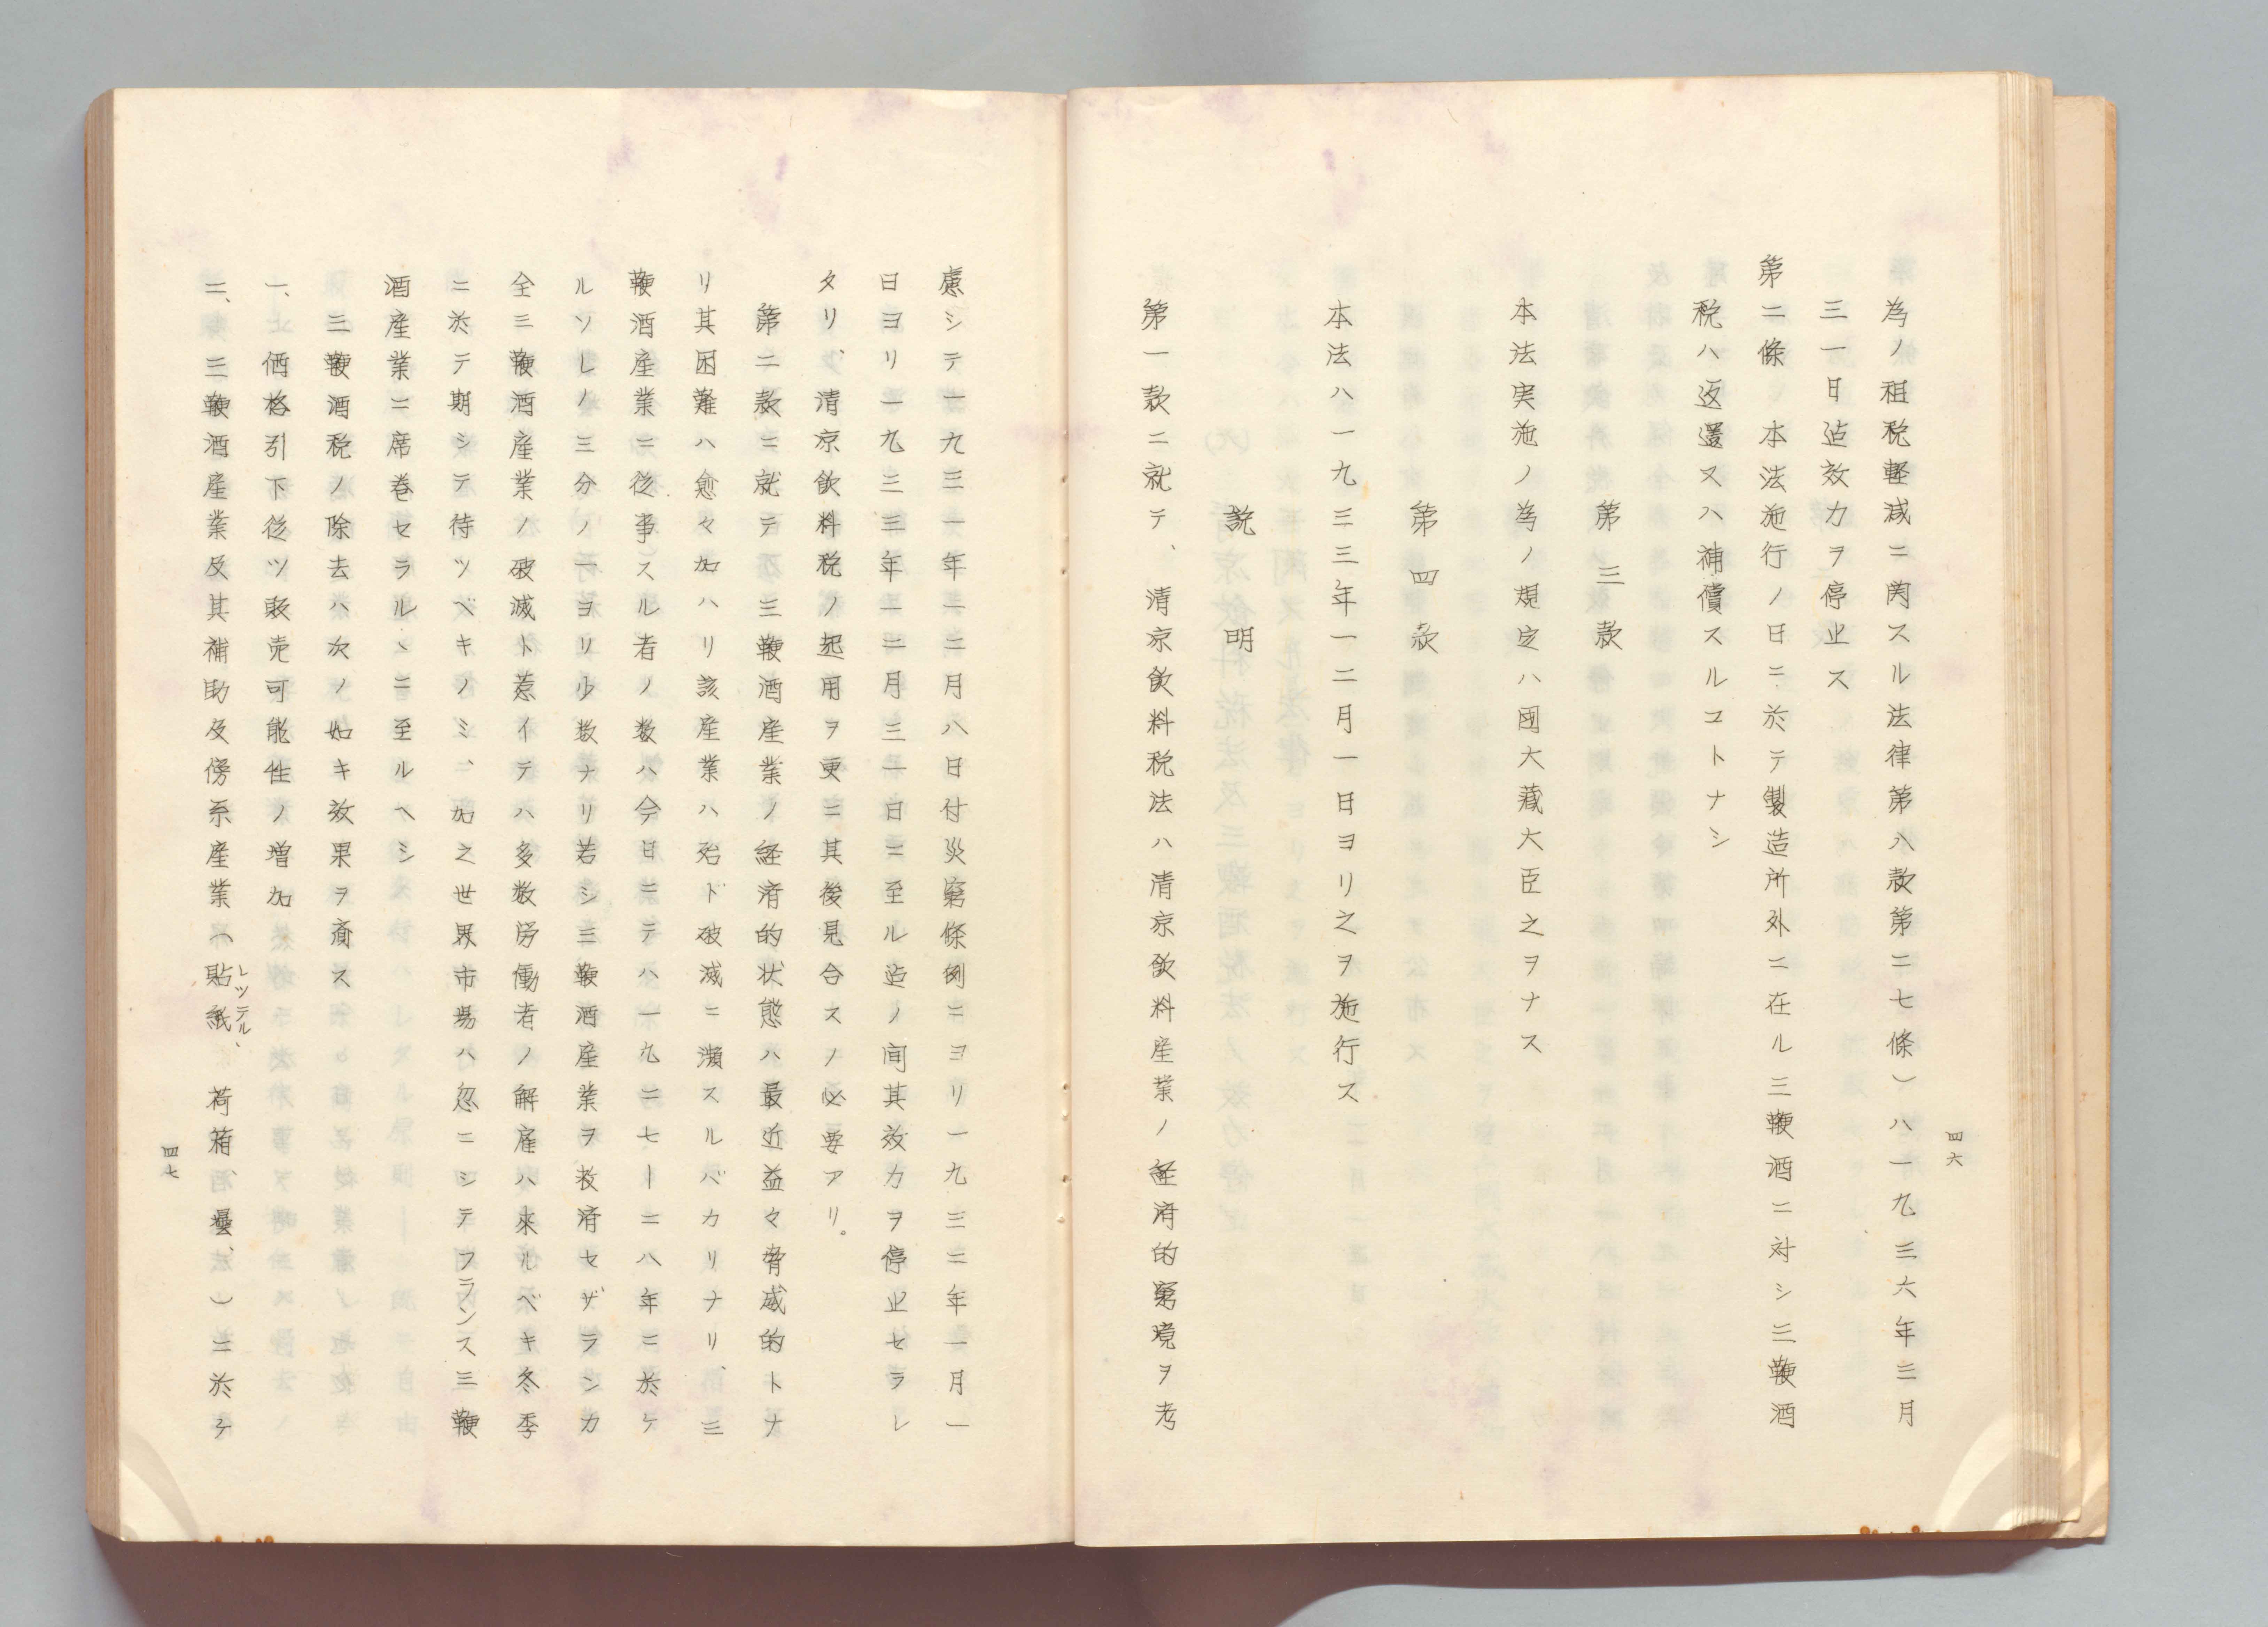 為ノ租税軽減ニ関スル法律第八款第二七條）ハ一九三六年三月
三一日迠效力ヲ停止ス
第二條、本法施行ノ日ニ於テ製造所外ニ在ル三鞭酒ニ対シ三鞭酒
税ハ返還又ハ補償スルコトナシ
第三款
本法実施ノ為ノ規定ハ国大蔵大臣之ヲナス
第四款
本法ハ一九三三年一二月一日ヨリ之ヲ施行ス
説明
第一款ニ就テ、清涼飲料税法ハ清涼飲料産業ノ経済的窮境ヲ考
四六
慮シテ一九三一年一二月八日付災窮條例ニヨリ一九三二年一月一
日ヨリ一九三三年一二月三一日ニ至ル迠ノ间其效力ヲ停止セラレ
タリ、清涼飲料税ノ起用ヲ更ニ其後見合スノ必要アリ。
第二款ニ就テ三鞭酒産業ノ経済的状態ハ最近益々脅威的トナ
リ其困難ハ愈々加ハリ該産業ハ殆ド破滅ニ瀕スルバカリナリ、三
鞭酒産業ニ従事スル者ノ数ハ今日ニテハ一九二七ー二八年ニ於ケ
ルソレノ三分ノ一ヨリ少数ナリ若シ三鞭酒産業ヲ救済セザランカ
全三鞭酒産業ノ破滅ト惹イテハ多数労働者ノ解雇ハ來ルベキ冬季
ニ於テ期シテ待ツベキノミ、加之世界市場ハ忽ニシテフランス三鞭
酒産業ニ席巻セラルヽニ至ルヘシ
三鞭酒税ノ除去ハ次ノ如キ效果ヲ齎ス
一、価格引下従ツ販売可能性ノ増加
二、三鞭酒産業及其補助及傍系産業（貼紙レツテル、荷箱、壜、）ニ於ケ
四七